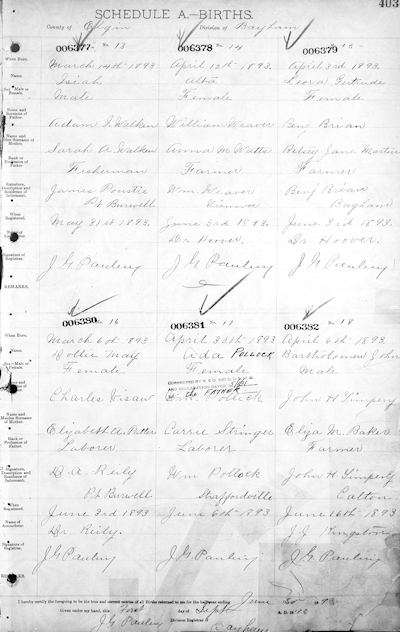 403
SCHEDULE A.—BIRTHS.
County of Elgin Division of Bayham
006377 13 006378 14 006379 15
When Born. March 14th 1893 April 12th 1893. April 3rd 1893.
Name. Isiah Altia Leora Gertrude
Sex—Male or Female. Male Female Female
Name and Surname of Father. Adam I. Walker William Weaver Benj Brian
Name and Maiden Surname of Mother. Sarah A Walker Anna M Watts Betsey Jane Martin
Rank or Profession of Father. Fisherman Farmer Farmer
Signature, Description and Residence of Informant. James Poustie Wm Weaver Benj Brian
Pt Burwell Vienna Bayham
When Registered. May 31st 1893. June 3rd 1893. June 3rd 1893.
Dr Hoover. Dr Hoover.
Signature of Registrar. J G Pauling J G Pauling J G Pauling
REMARKS.
006380 16 006381 17 006382 18
When Born. March 6th 1893 April 1893 April 6th 1893
Name. Dollie May Ada POLLOCK Bartholomew John
Sex—Male or Female. Female Female Male
the FATHER
Name and Surname of Father. Charles Wm Pollock John H
Name and Maiden Surname of Mother. Elizabeth A. Carrie Stringer Eliza M. Baker
Rank or Profession of Father. Laborer Laborer Farmer
Signature, Description and Residence of Informant. D. A. Reily Wm Pollock John H
Pt Burwell Straffordville Calton
When Registered. June 3rd 1893 June 6th 1893 June 16th 1893
Name of Accoucheur. Dr. Reily. J. J. Kingston
Signature of Registrar. J G Pauling J G Pauling J G Pauling
REMARKS.
I hereby certify the foregoing to be the true and correct entries of all Births returned to me for the half-year ending June 30 1893
Given under my hand, this First day of Sept A.D. 18
J G Pauling Division Registrar of Bayham